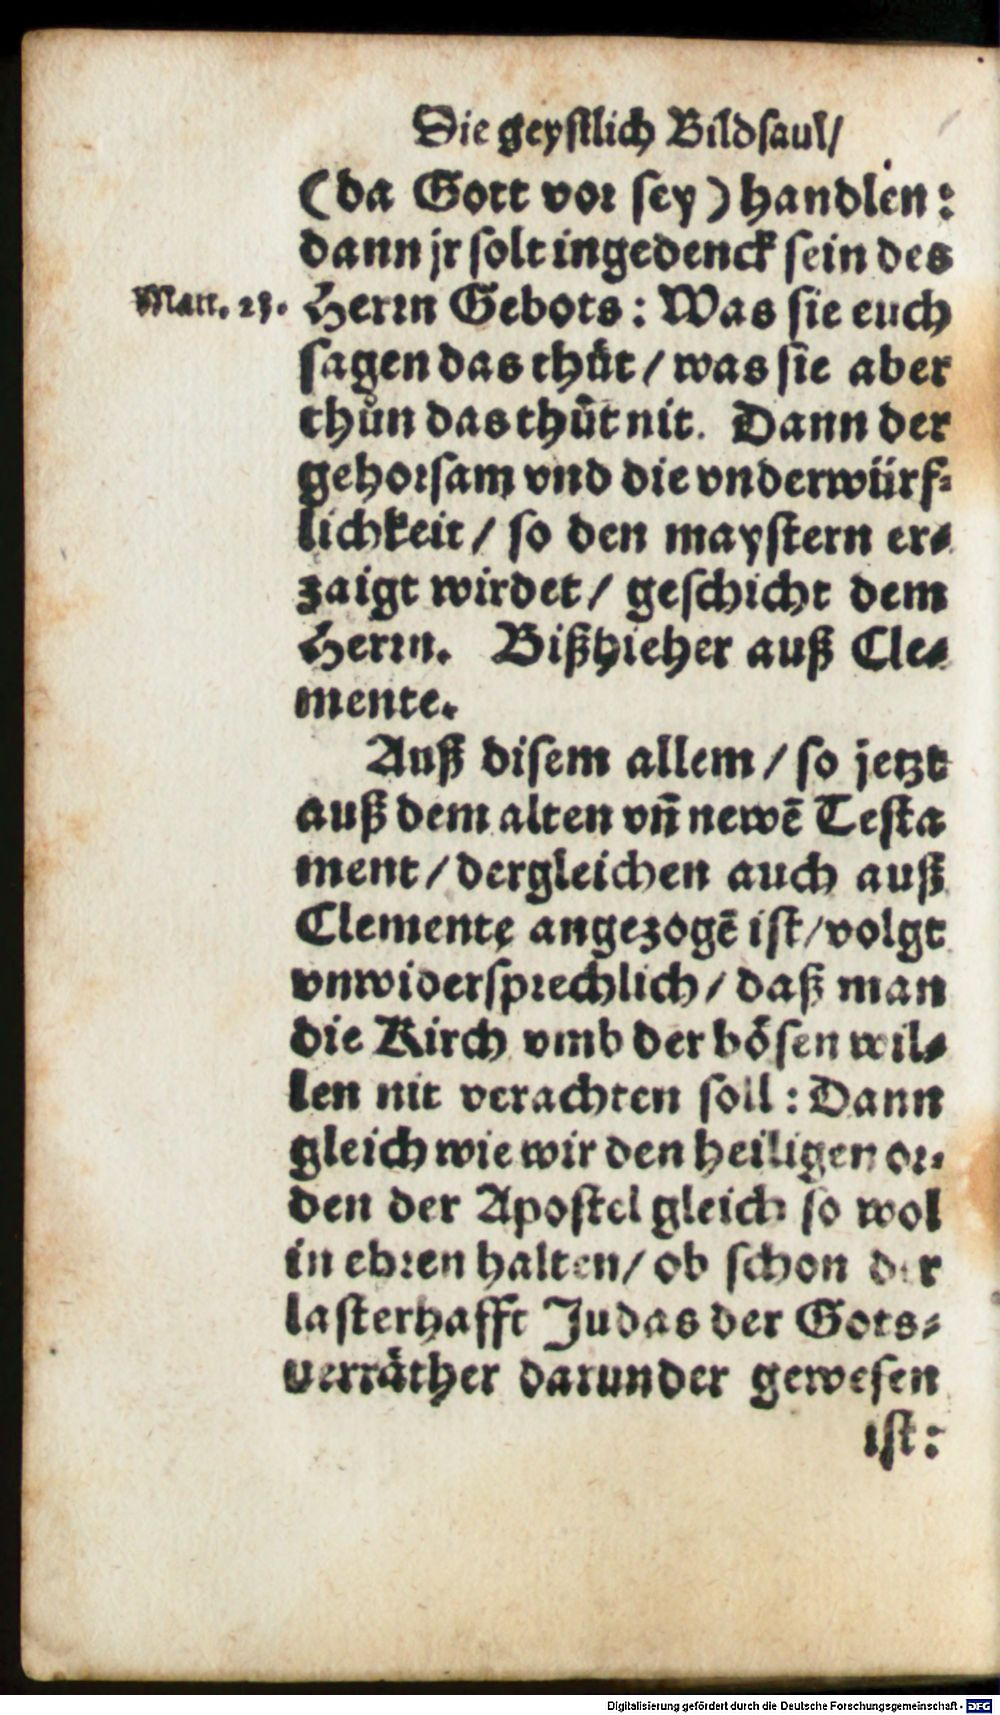 Die geystlich Bildsaul/
(da Gott vor sey) handlen:
dann jr solt ingedenck sein des
Matt. 23. Herrn Gebots: Was sie euch
sagen das thůt/ was sie aber
thůn das thůt nit. Dann der
gehorsam vnd die vnderwürf-
lichkeit/ so den maystern er-
zaigt wirdet/ geschicht dem
Herrn. Bißhieher auß Cle-
mente.
Auß disem allem/ so jetzt
auß dem alten vñ newē Testa
ment/ dergleichen auch auß
Clemente angezogē ist/ volgt
vnwidersprechlich/ daß man
die Kirch vmb der bösen wil-
len nit verachten soll: Dann
gleich wie wir den heiligen or-
den der Apostel gleich so wol
in ehren halten/ ob schon der
lasterhafft Judas der Gots-
verräther darunder gewesen
ist:
Digitalisierung gefördert durch die Deutsche Forschungsgemeinschaft - DFG